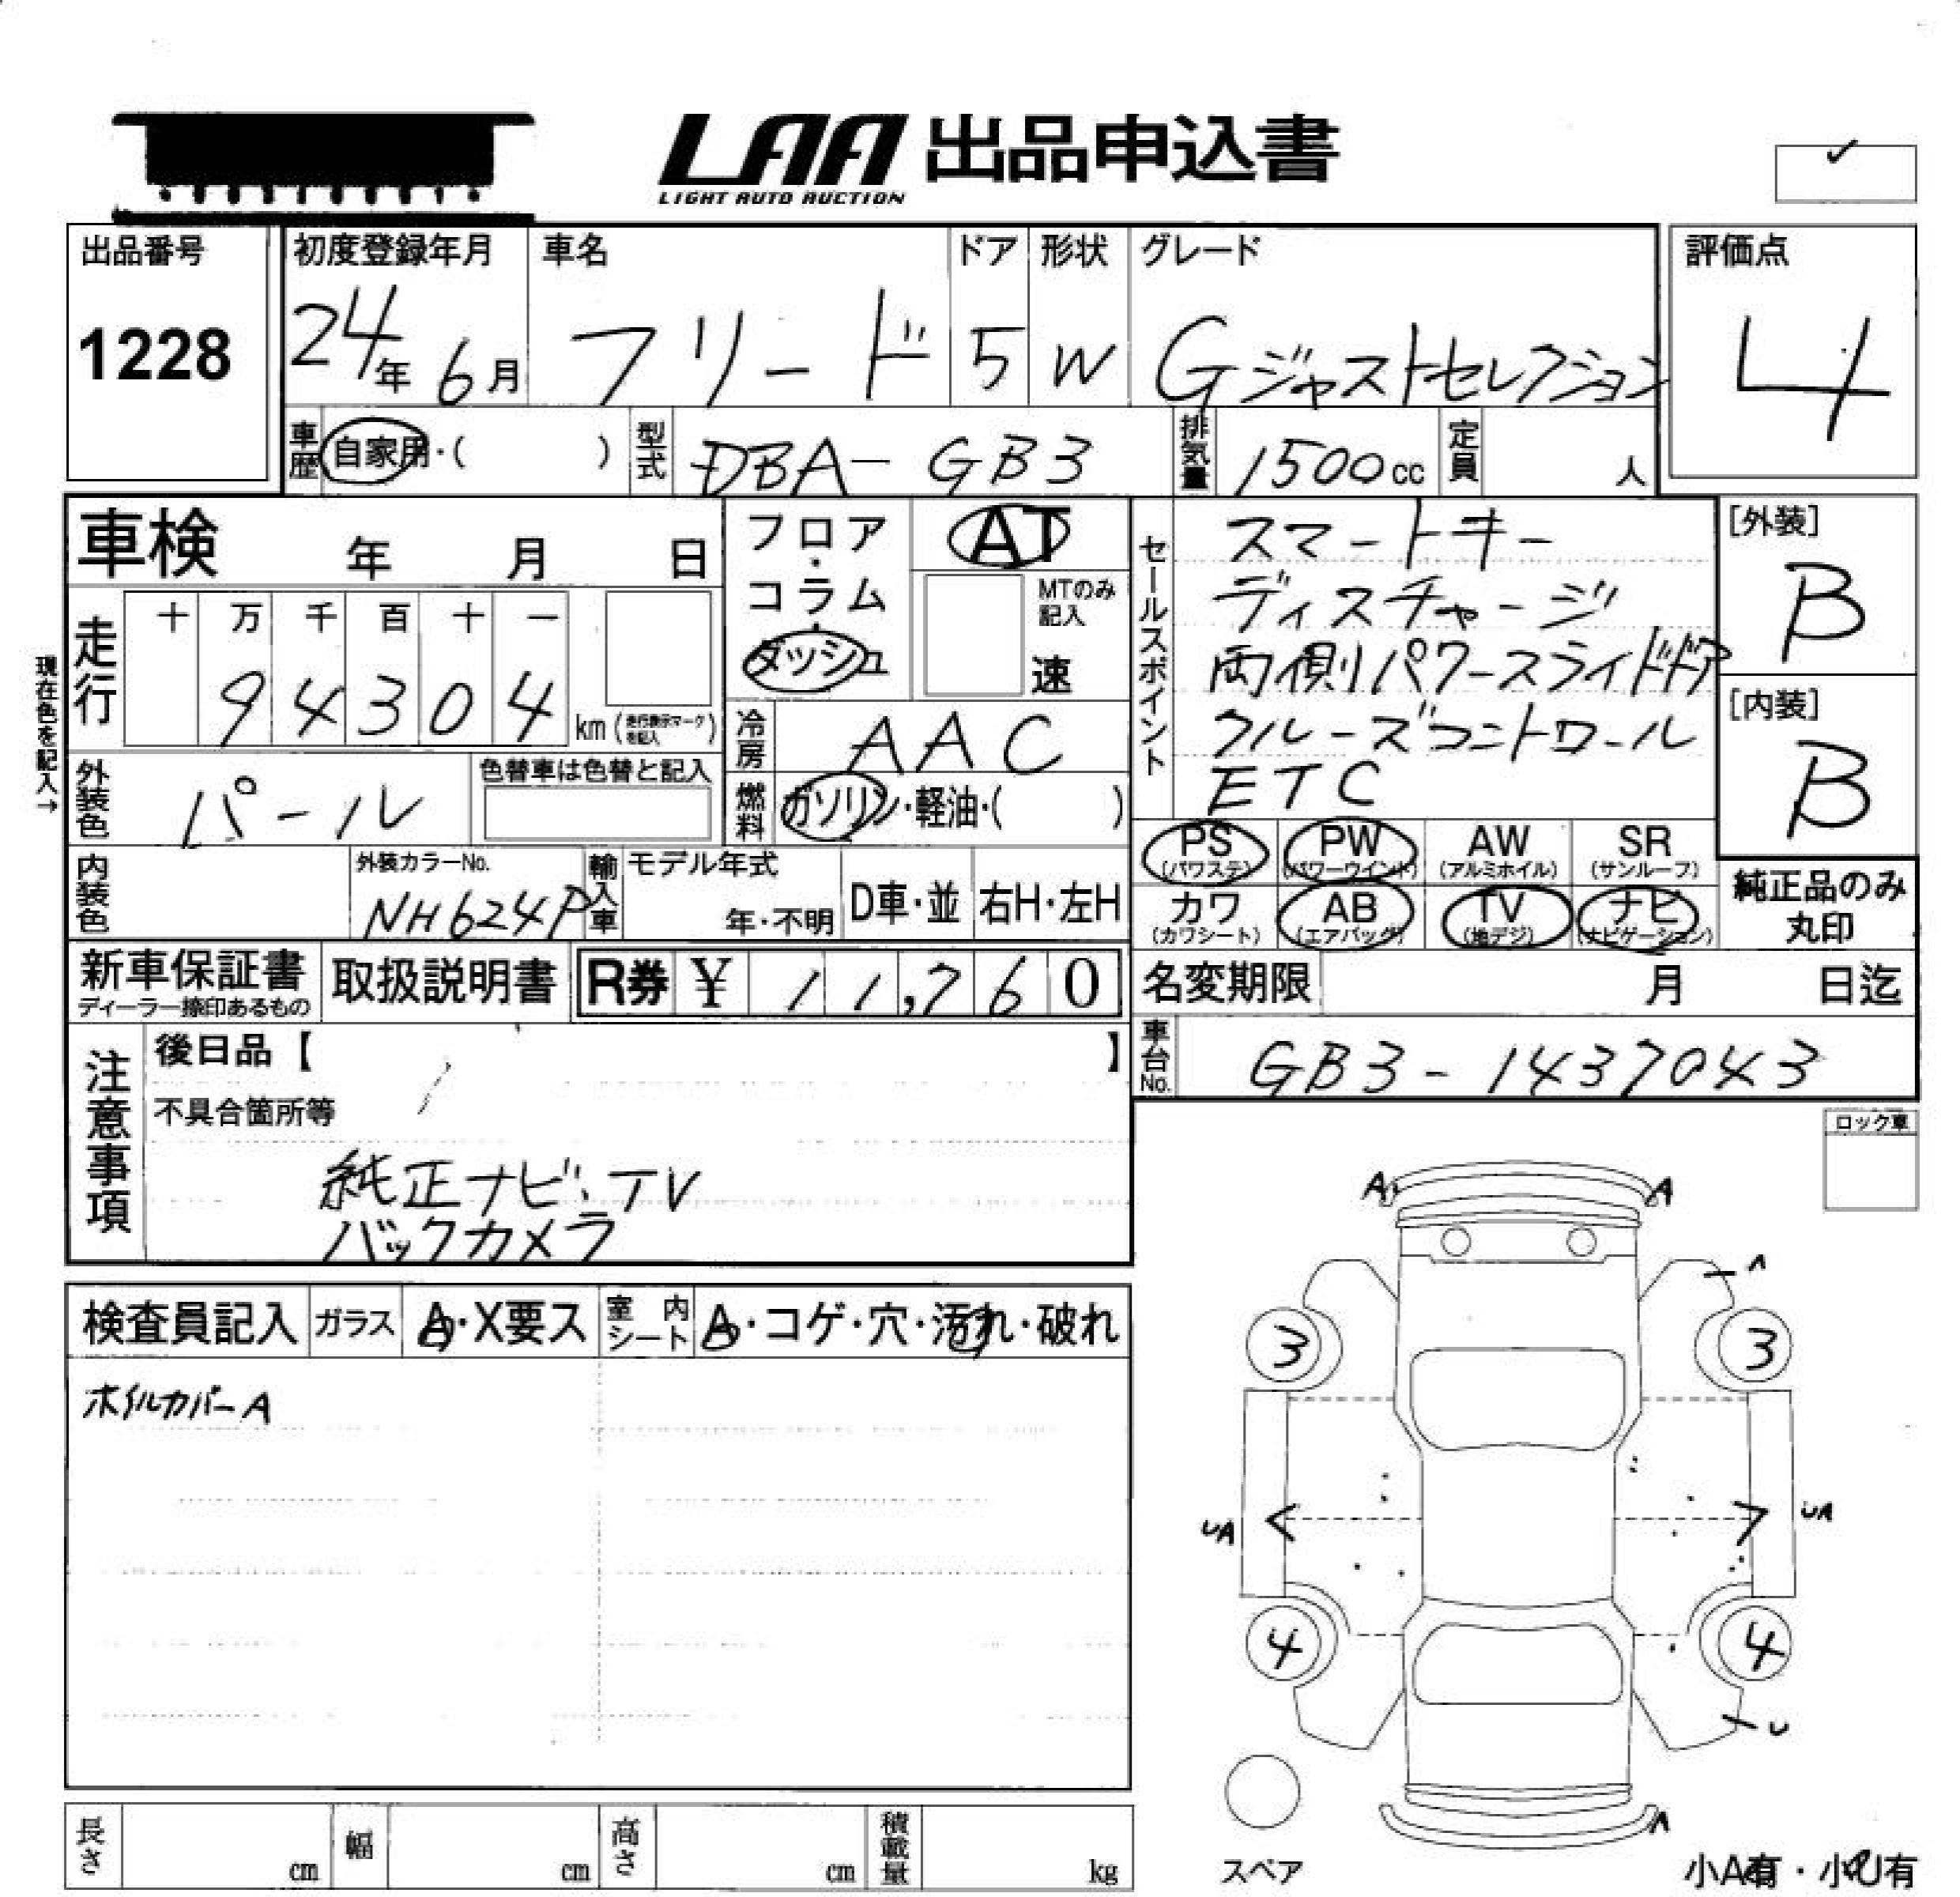 LAA 出品申込書
LIGHT AUTO AUCTION
出品番号
1228
初度登録年月
24年 6月
車名
フリード
ドア
5
形状
W
グレード
Gジャストセレクション
評価点
4
車歴
自家用・( )
型式
DBA-GB3
排気量
1500cc
定員
人
車検 年 月 日
フロア・コラム・ダッシュ
AT
MTのみ記入
速
セールスポイント
スマートキー
ディスチャージ
両側パワースライドドア
クルーズコントロール
ETC
[外装]
B
[内装]
B
現在色を記入→
走行
十 万 千 百 十 一
94304
km (走行表示マークを記入)
冷房
AAC
外装色
パール
色替車は色替と記入
燃料
ガソリン・軽油・( )
PS (パワステ)
PW (パワーウインド)
AW (アルミホイル)
SR (サンルーフ)
カワ (カワシート)
AB (エアバッグ)
TV (地デジ)
ナビ (ナビゲーション)
純正品のみ丸印
内装色
外装カラーNo.
NH624P
輸入車
モデル年式
年・不明
D車・並
右H・左H
新車保証書
ディーラー捺印あるもの
取扱説明書
R券 ¥ 11,760
名変期限 月 日迄
車台No.
GB3-1437043
注意事項
後日品【 】
不具合箇所等
純正ナビ・TV
バックカメラ
ロック車
検査員記入
ガラス
A・X要ス
室内シート
A・コゲ・穴・汚れ・破れ
ホイルカバーA
A A
A
3 3
UA UA
4 4
U
A
スペア
小A有・小U有
長さ cm
幅 cm
高さ cm
積載量 kg